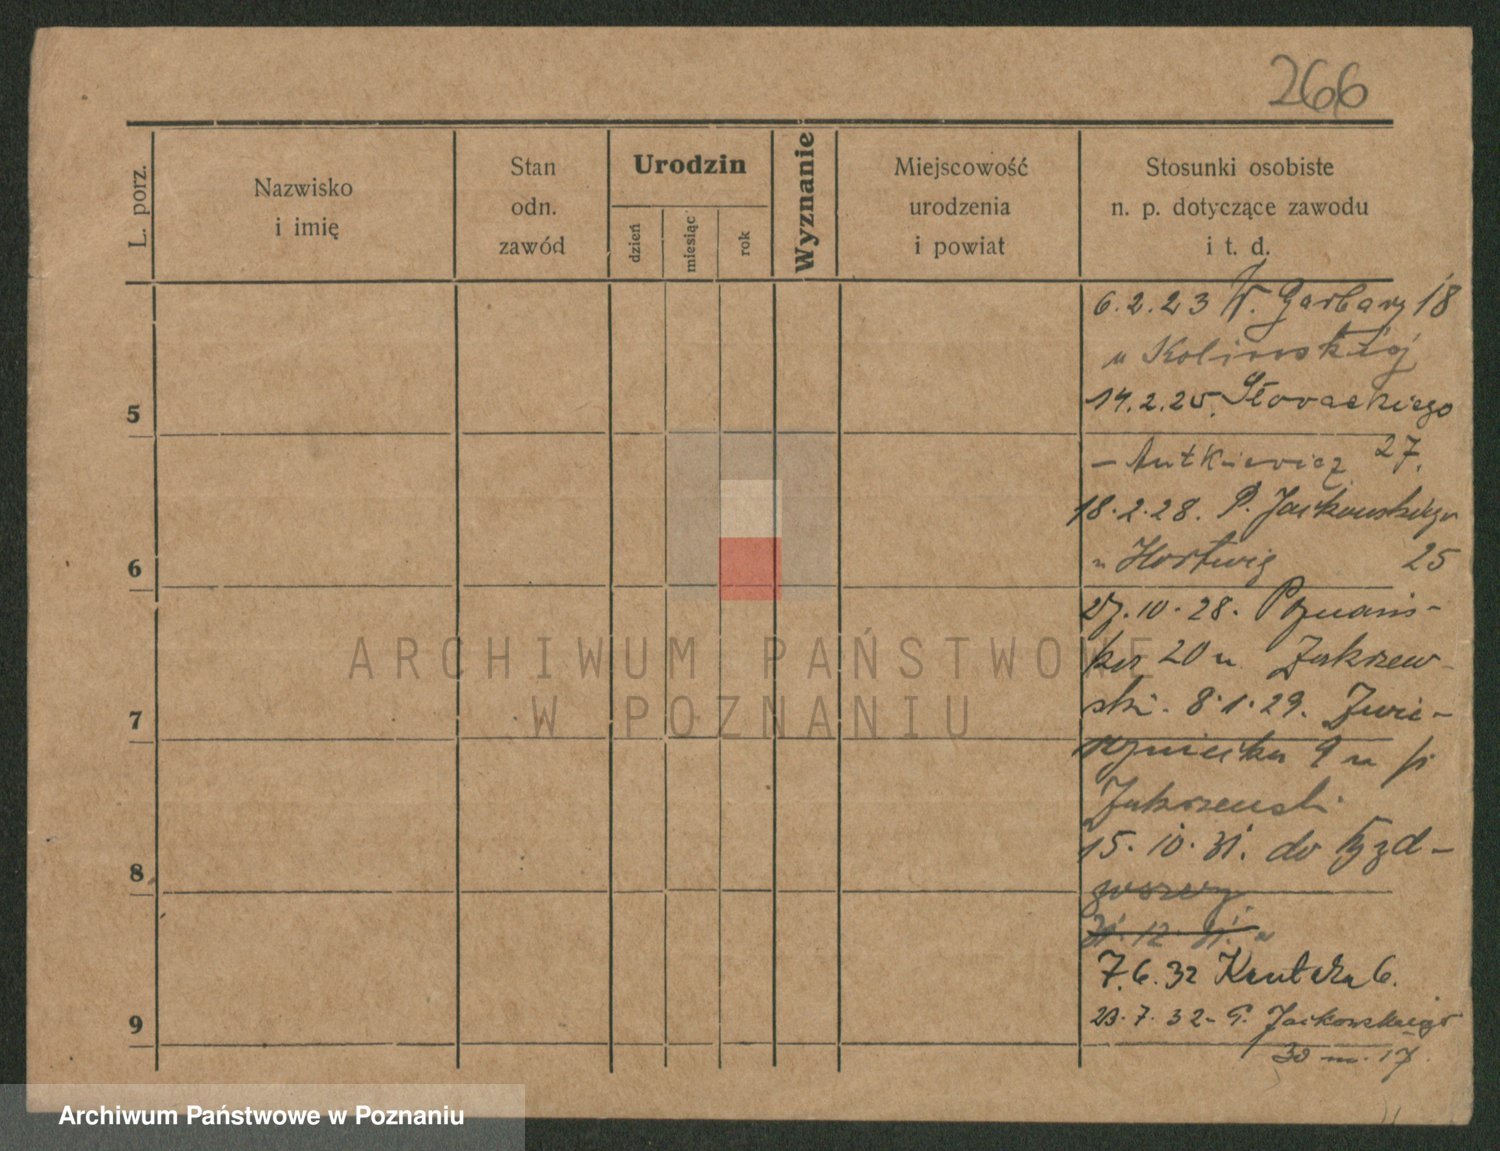 266
L. porz.
Nazwisko
i imię
Stan
odn.
zawód
Urodzin
dzień
miesiąc
rok
Wyznanie
Miejscowość
urodzenia
i powiat
Stosunki osobiste
n. p. dotyczące zawodu
i t. d.
6.2.23 W. Garbary 18
u
14.2.25. Słowackiego
5
– Antkiewicz 27.
18.2.28. P. Jackowskiego
u Hartwig 25
6
27.10.28. Poznańs-
ka 20 u Zakrzew-
ski. 8.1.29. Zwie-
7
rzyniecka 9 u p.
Zakrzewski
15.10.31. do
8
31.12.31. u
7.6.32 Kantaka 6.
23.7.32 – P. Jackowskiego
9
30 m. 17.
ARCHIWUM PAŃSTWOWE
W POZNANIU
Archiwum Państwowe w Poznaniu